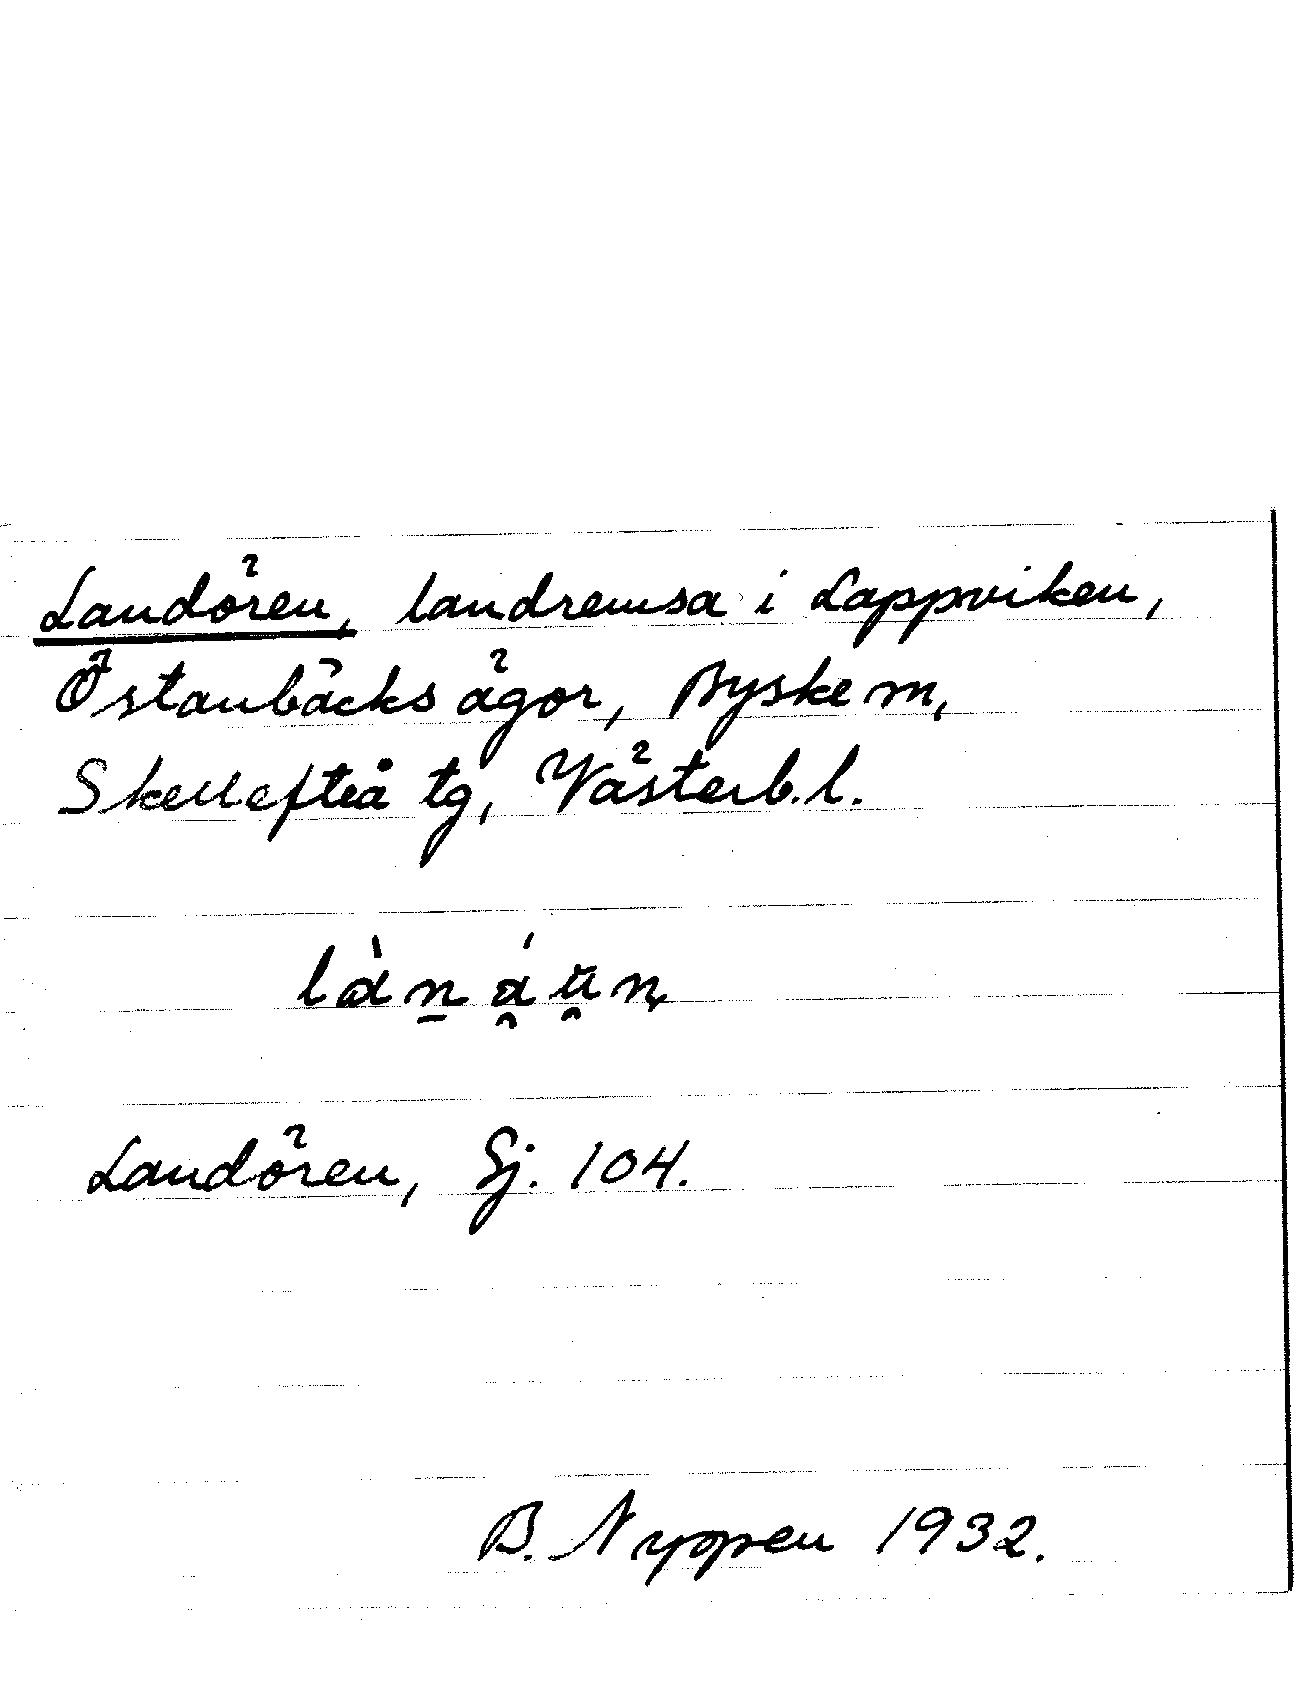 Landören, landremsa i Lappviken,
Östanbäcks ägor, Byske m,
Skellefteå tg, Västerb.l.
Landören, Gj. 104.
B. Nyppen 1932.